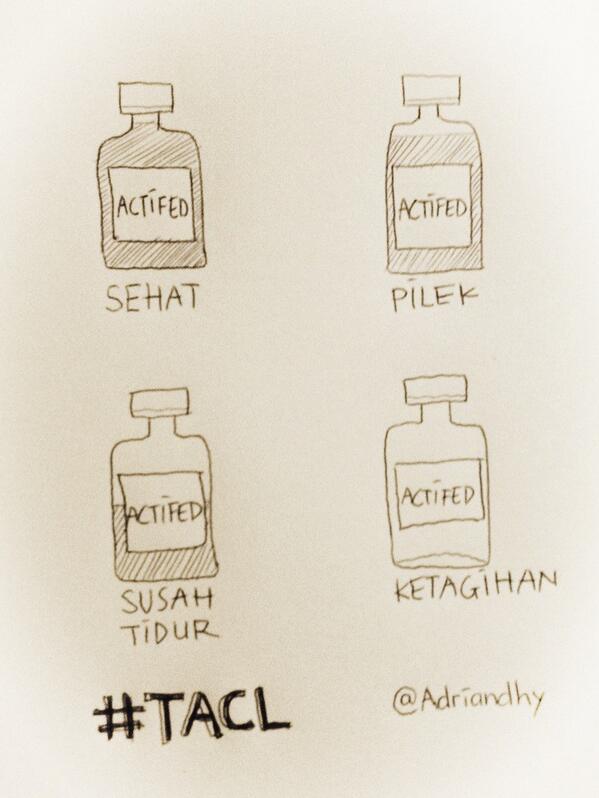 ACTIFED
SEHAT
ACTIFED
PILEK
ACTIFED
SUSAH
TIDUR
ACTIFED
KETAGIHAN
#TACL
@Adriandhy